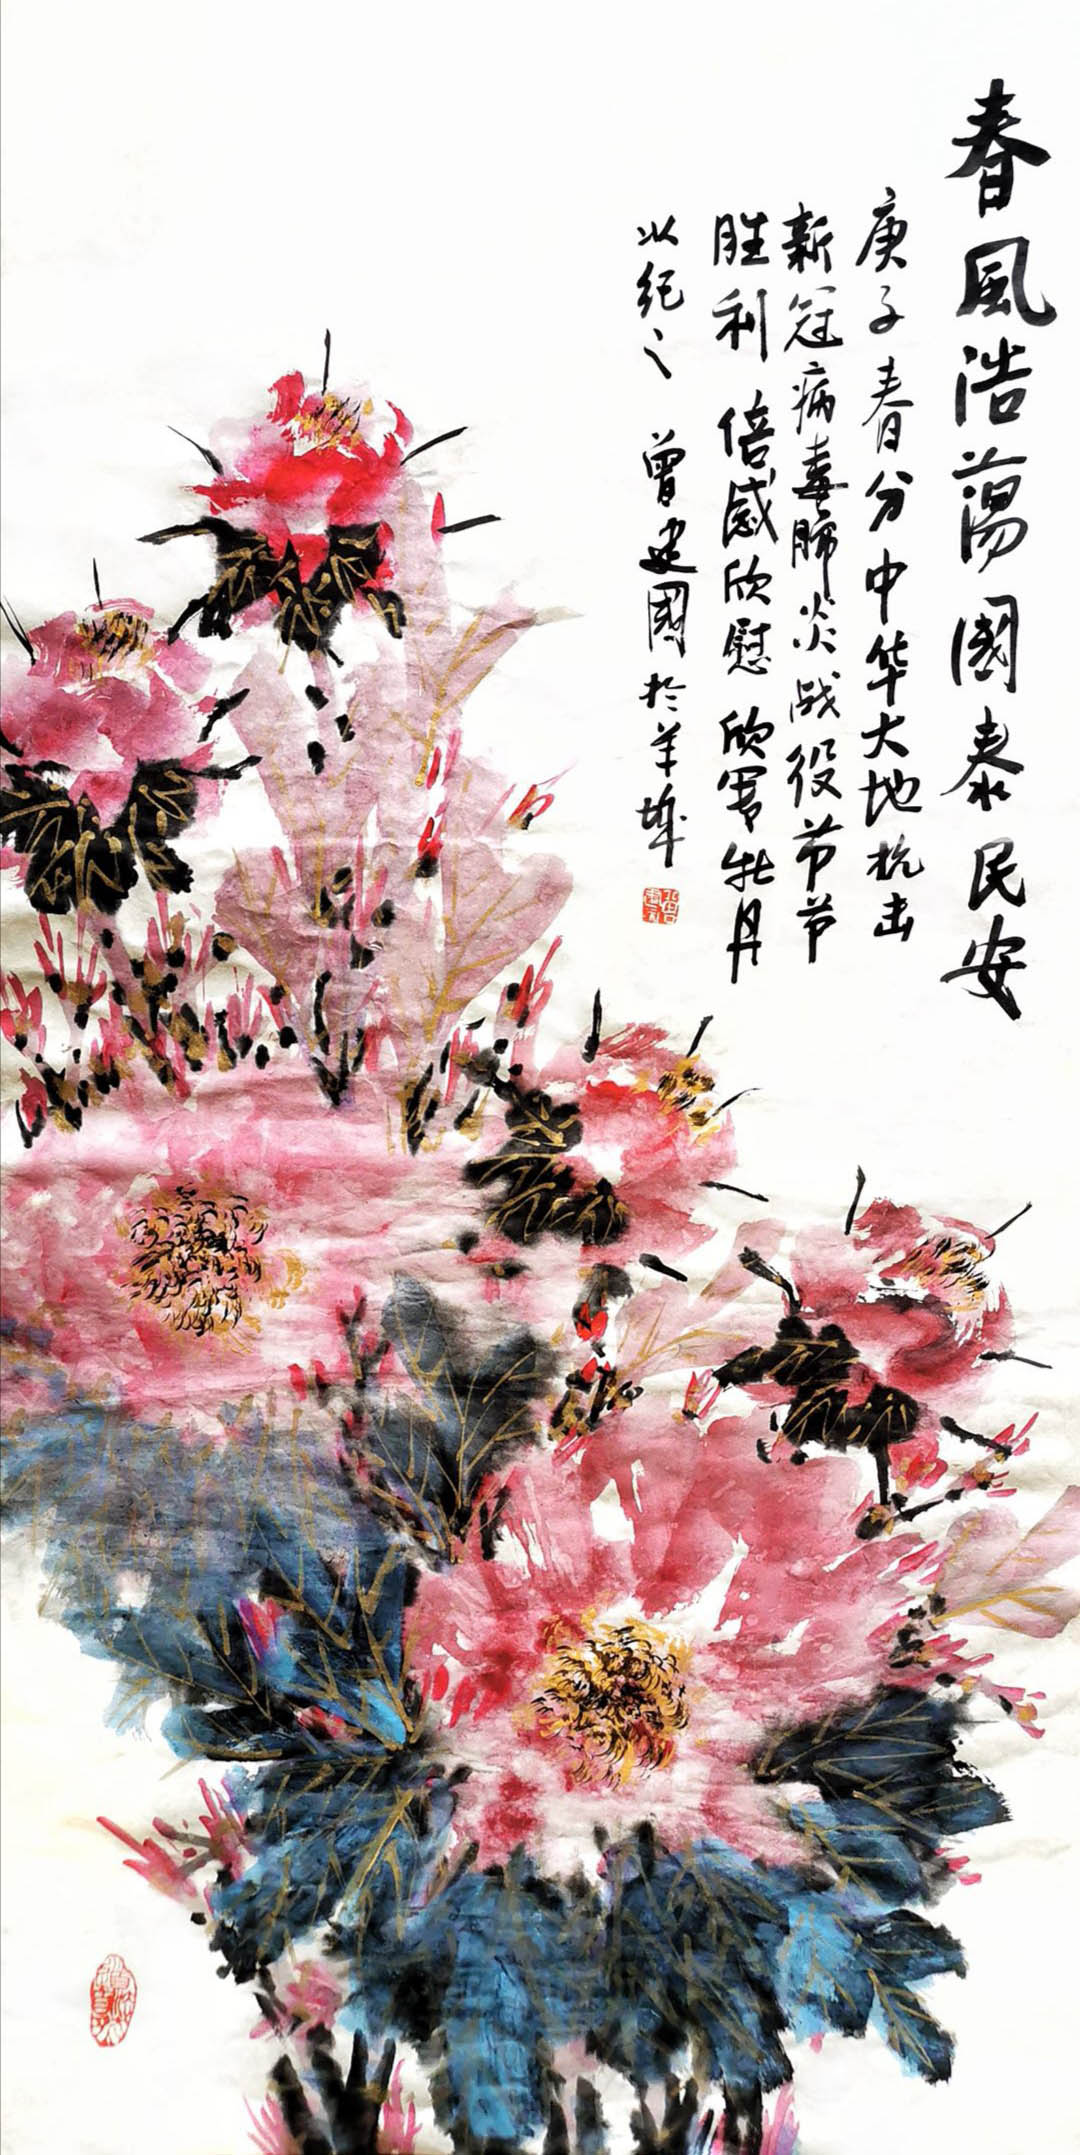 春風浩蕩國泰民安
庚子春分中华大地抗击
新冠病毒肺炎战役节节
胜利倍感欣慰欣写牡丹
以纪之 曾建國於羊城